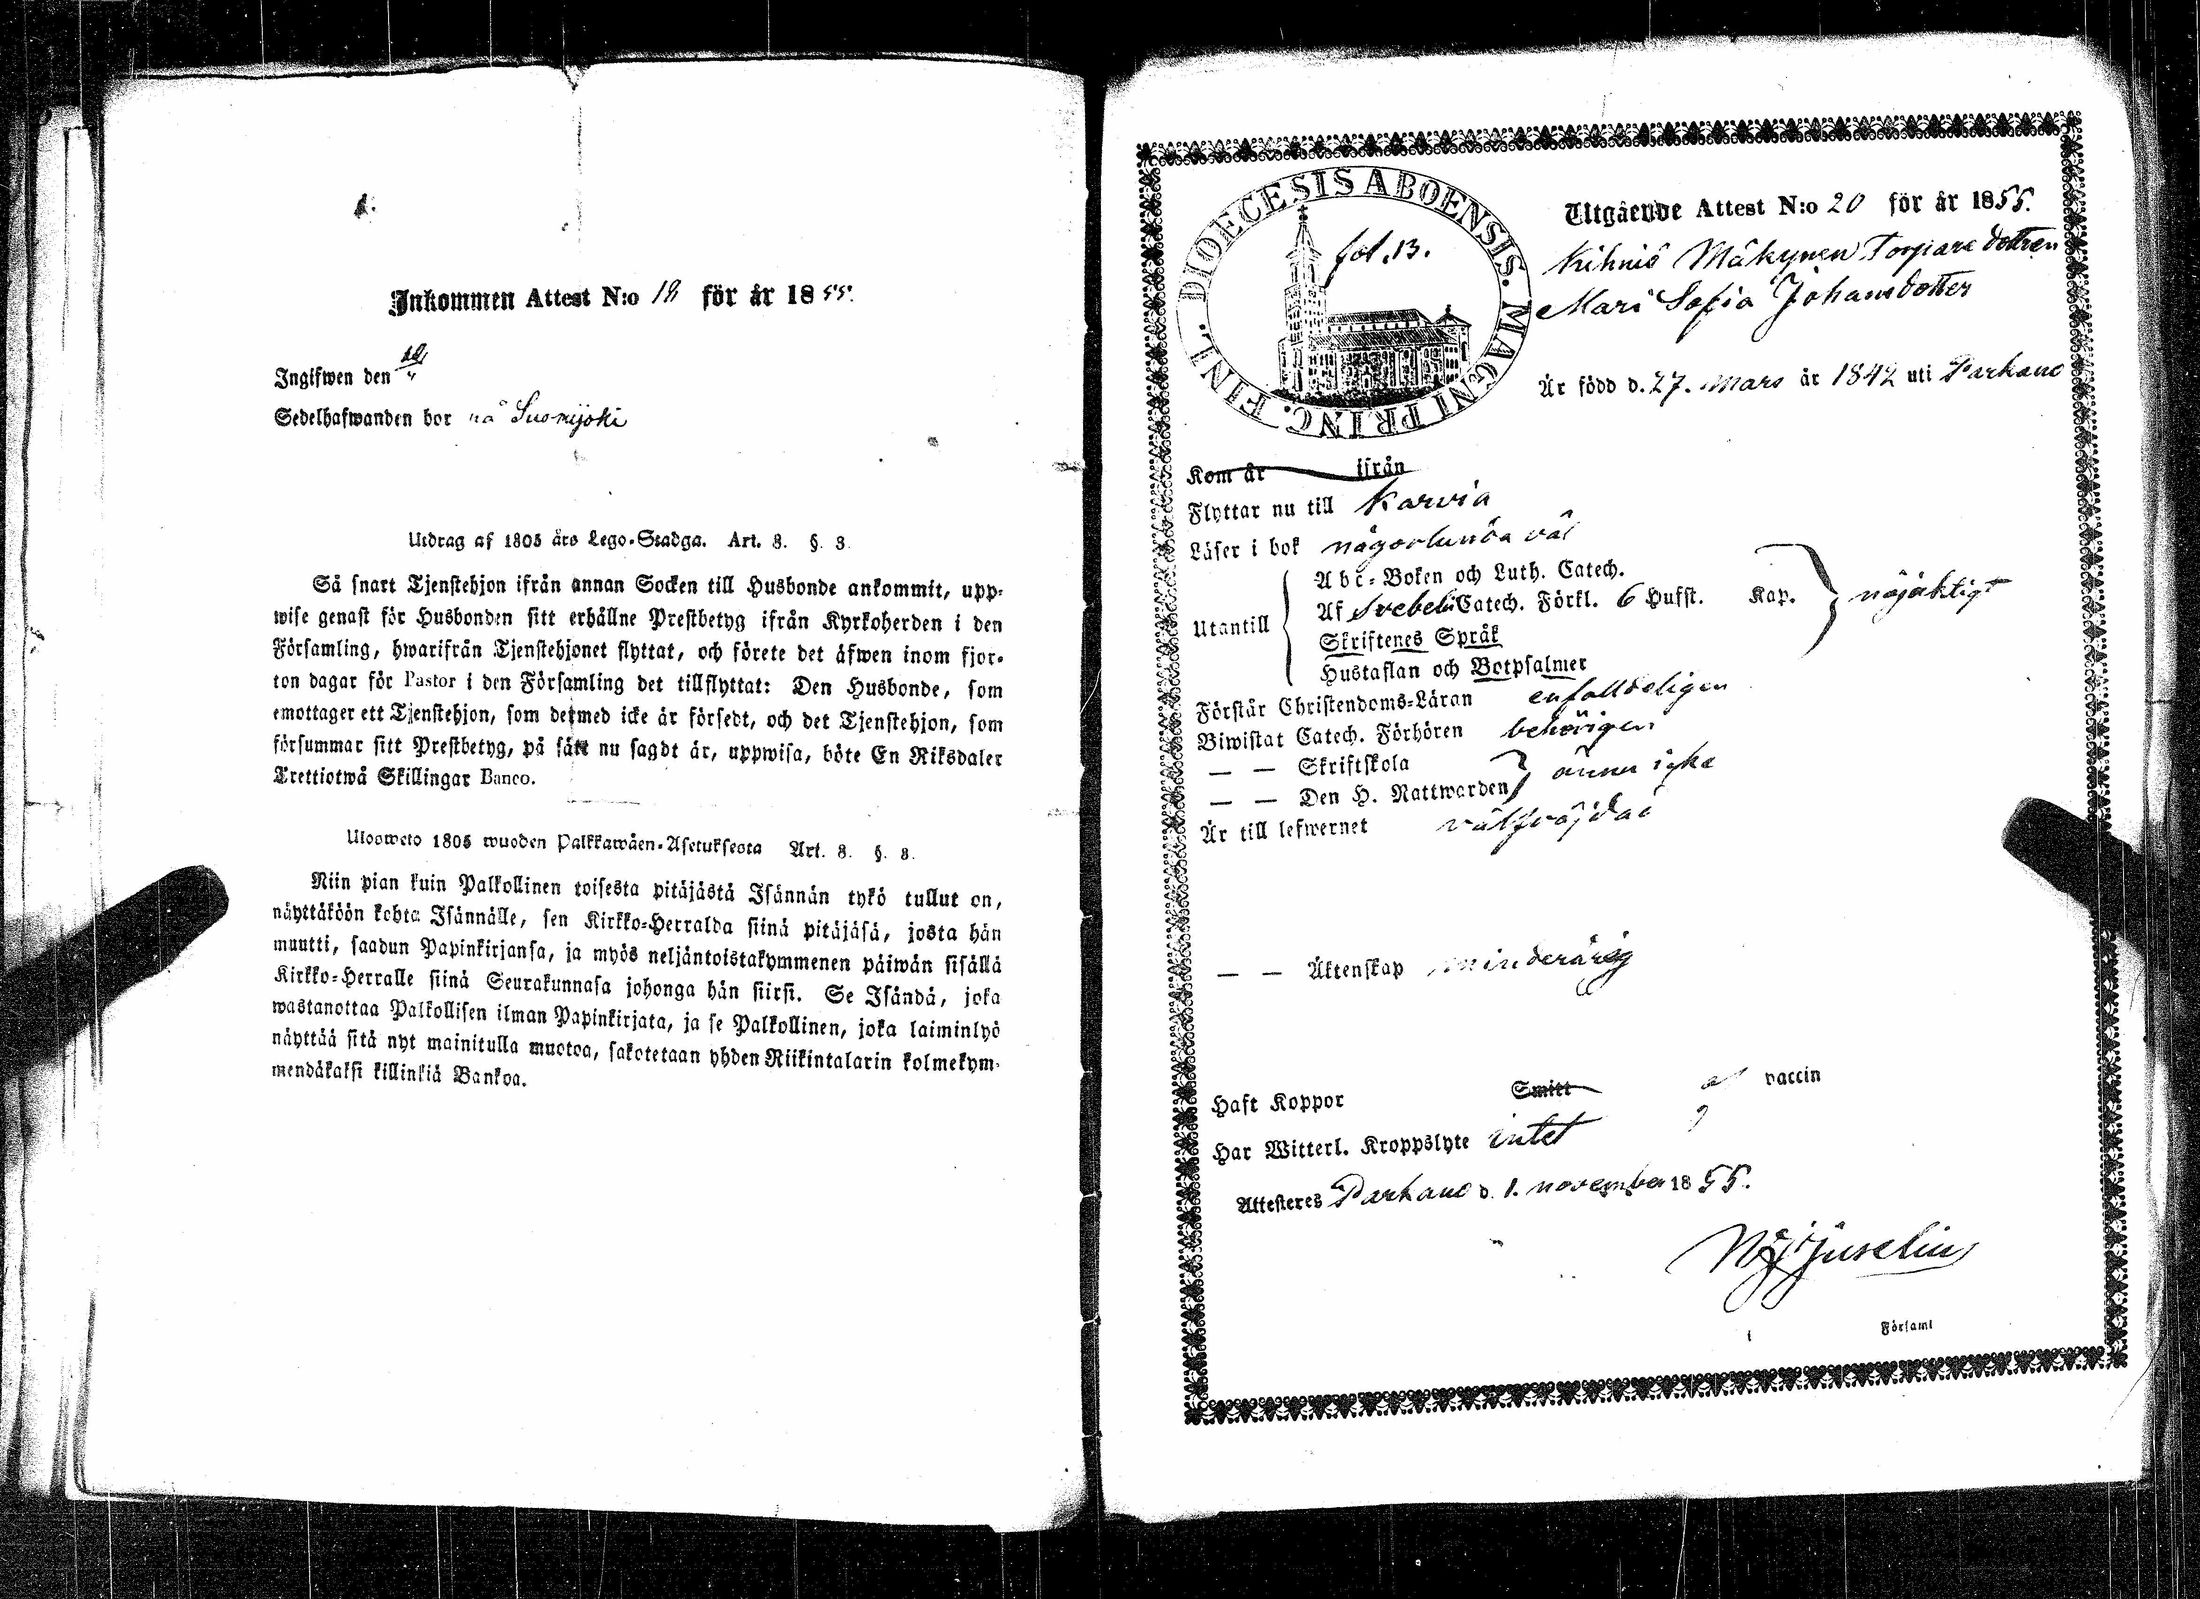 Inkommen Attest N:o 18 för år 1855.
Ingifwen den
Sedelhafwanden bor på Suomijoki
Utdrag af 1805 års Lego-Stadga. Art. 8. §. 3.
Så snart Tjenstehjon ifrån annan Socken till Husbonde ankommit, upp-
wise genast för Husbonden sitt erhållne Prestbetyg ifrån Kyrkoherden i den
Församling, hwarifrån Tjenstehjonet flyttat, och förete det äfwen inom fjor-
ton dagar för Pastor i den Församling det tillflyttat: Den Husbonde, som
emottager ett Tjenstehjon, som dermed icke är försedt, och det Tjenstehjon, som
försummar sitt Prestbetyg, på sätt nu sagdt är, uppwisa, böte En Riksdaler
Trettiotwå Skillingar Banco.
Ulosweto 1805 wuoden Palkkawäen-Asetuksesta Art. 8. §. 3.
Niin pian kuin Palkollinen toisesta pitäjästä Isännän tykö tullut on,
näyttäköön kohta Isännälle, sen Kirkko-Herralda siinä pitäjäsä, josta hän
muutti, saadun Papinkirjansa, ja myös neljäntoistakymmenen päiwän sisällä
Kirkko-Herralle siinä Seurakunnasa johonga hän siirsi. Se Isändä, joka
wastanottaa Palkollisen ilman Papinkirjata, ja se Palkollinen, joka laiminlyö
näyttää sitä nyt mainitulla muotoa, sakotetaan yhden Riikintalarin kolmekym-
mendäkaksi killinkiä Bankoa.
DIOECESIS ABOENSIS. MAGNI PRINC. FINL.
fol. 13.
Utgående Attest N:o 20 för år 1855.
Kihniö Mäkynen Torpare dottren
Mari Sofia Johansdotter
Är född d. 27. Mars år 1842 uti Parkano
Kom år ifrån
Flyttar nu till Karvia
Läser i bok någorlunda väl
Utantill
Abc-Boken och Luth. Catech.
Af Svebelii Catech. Förkl. 6 Hufst. Kap. nöjaktigt
Skriftenes Språk
Hustaflan och Botpsalmer
Förstår Christendoms-Läran enfalldeligen
Biwistat Catech. Förhören behörigen
— — Skriftskola
— — Den H. Nattwarden ännu icke
Är till lefwernet välfräjdad
— — Äktenskap minderårig
Haft Koppor Smitt af vaccin
Har Witterl. Kroppslyte intet
Attesteres Parkano d. 1. november 1855.
Juselius
Församl